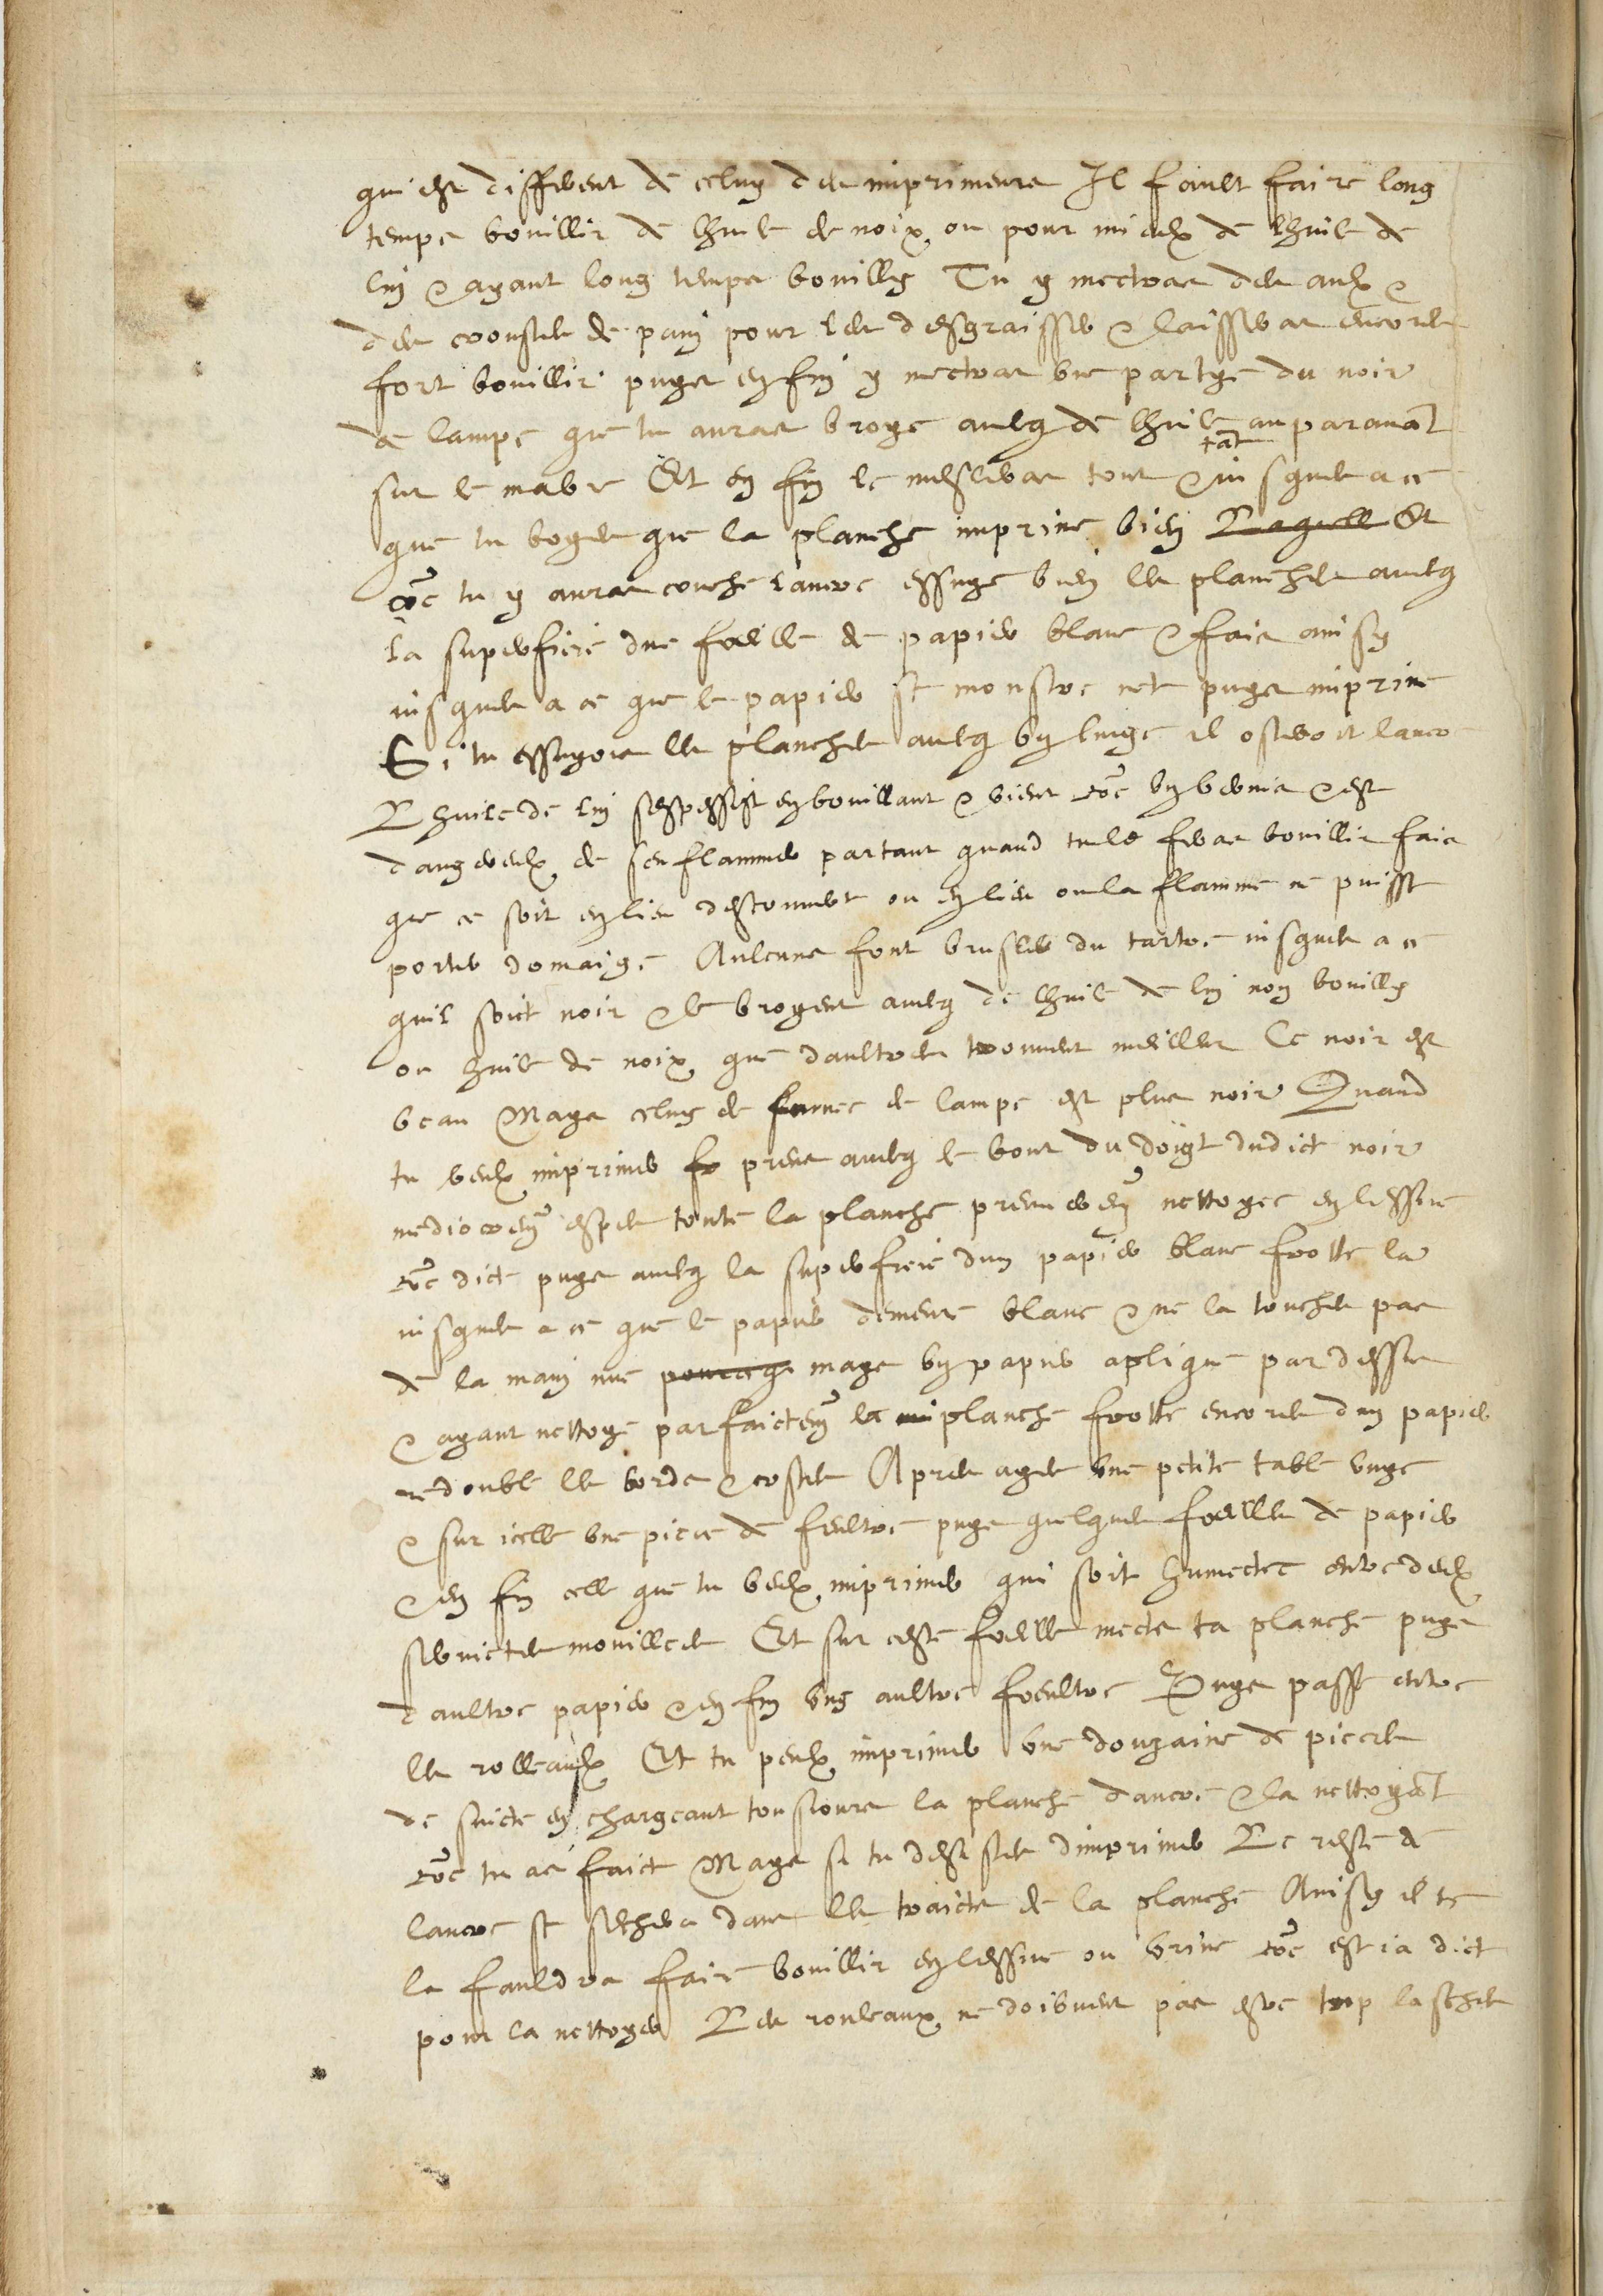 qui est different de celuy des imprimeurs Il fault faire long
temps bouillir de lhuile de noix ou pour mieulx de lhuile de
lin & ayant long temps bouilly Tu y mectras des aulx &
des croustes de pain pour les desgraisser & laisseras encores
fort bouillir puys en fin y mectras une partye du noir
de lampe que tu auras broye avecq de lhuile auparavãt
sur le mabre Et en fin le mesleras tout & tãt jusques a ce
que tu voyes que la planche imprime bien Laquelle Et
cõe tu y auras couche lancre essuye bien les planches avecq
la superficie dune foeille de papier blanc & fais ainsy
jusques a ce que le papier se monstre net puys imprime
Si tu essuyois les planches avecq un linge il osteroit lancre
Lhuile de lin sespessist en bouillant & vient cõe un vernis & est
dangereulx de senflammer partant quand tu le feras bouillir fais
que ce soit en lieu descouvert ou en lieu ou la flamme ne puisse
porter domaige Aulcuns font brusler du tartre jusques a ce
quil soict noir & le broyent avecq de lhuile de lin non bouilly
ou huile de noix que daultres trouvent meilleur Ce noir est
beau Mays celuy de fumee de lampe est plus noir Quand
tu veulx imprimer fr prens avecq le bout du doigt dudict noir
mediocrem̃ espes toute la planche premierem̃ nettoyee en lessive
cõe dict puys avecq la superficie dun papier blanc frotte la
jusques a ce que le papier demeure blanc & ne la touches pas
de la main nue pource q mays un papier aplique par dessus
& ayant nettoye parfaictem̃ la im planche frotte encores dun papier
redouble les bords & costes Apres ayes une petite table unye
& sur icelle une piece de feultre puys quelques foeilles de papier
& en fin celle que tu veulx imprimer qui soit humectee entre deulx
serviettes mouillees Et sur ceste foeille mects ta planche puys
daultre papier & en fin ung aultre foeultre Puys passe entre
les rolleaulx Et tu peulx imprimer une douzaine de pieces
de suicte en chargeant tousjours la planche dancre & la nettoyãt
cõe tu as faict Mays si tu desistes dimprimer Le reste de
lancre se sechera dans les traicts de la planche Ainsy il te
la fauldra faire bouillir en lessive ou urine cõe est ja dict
pour la nettoyer Les rouleaux ne doibvent pas estre trop lasches